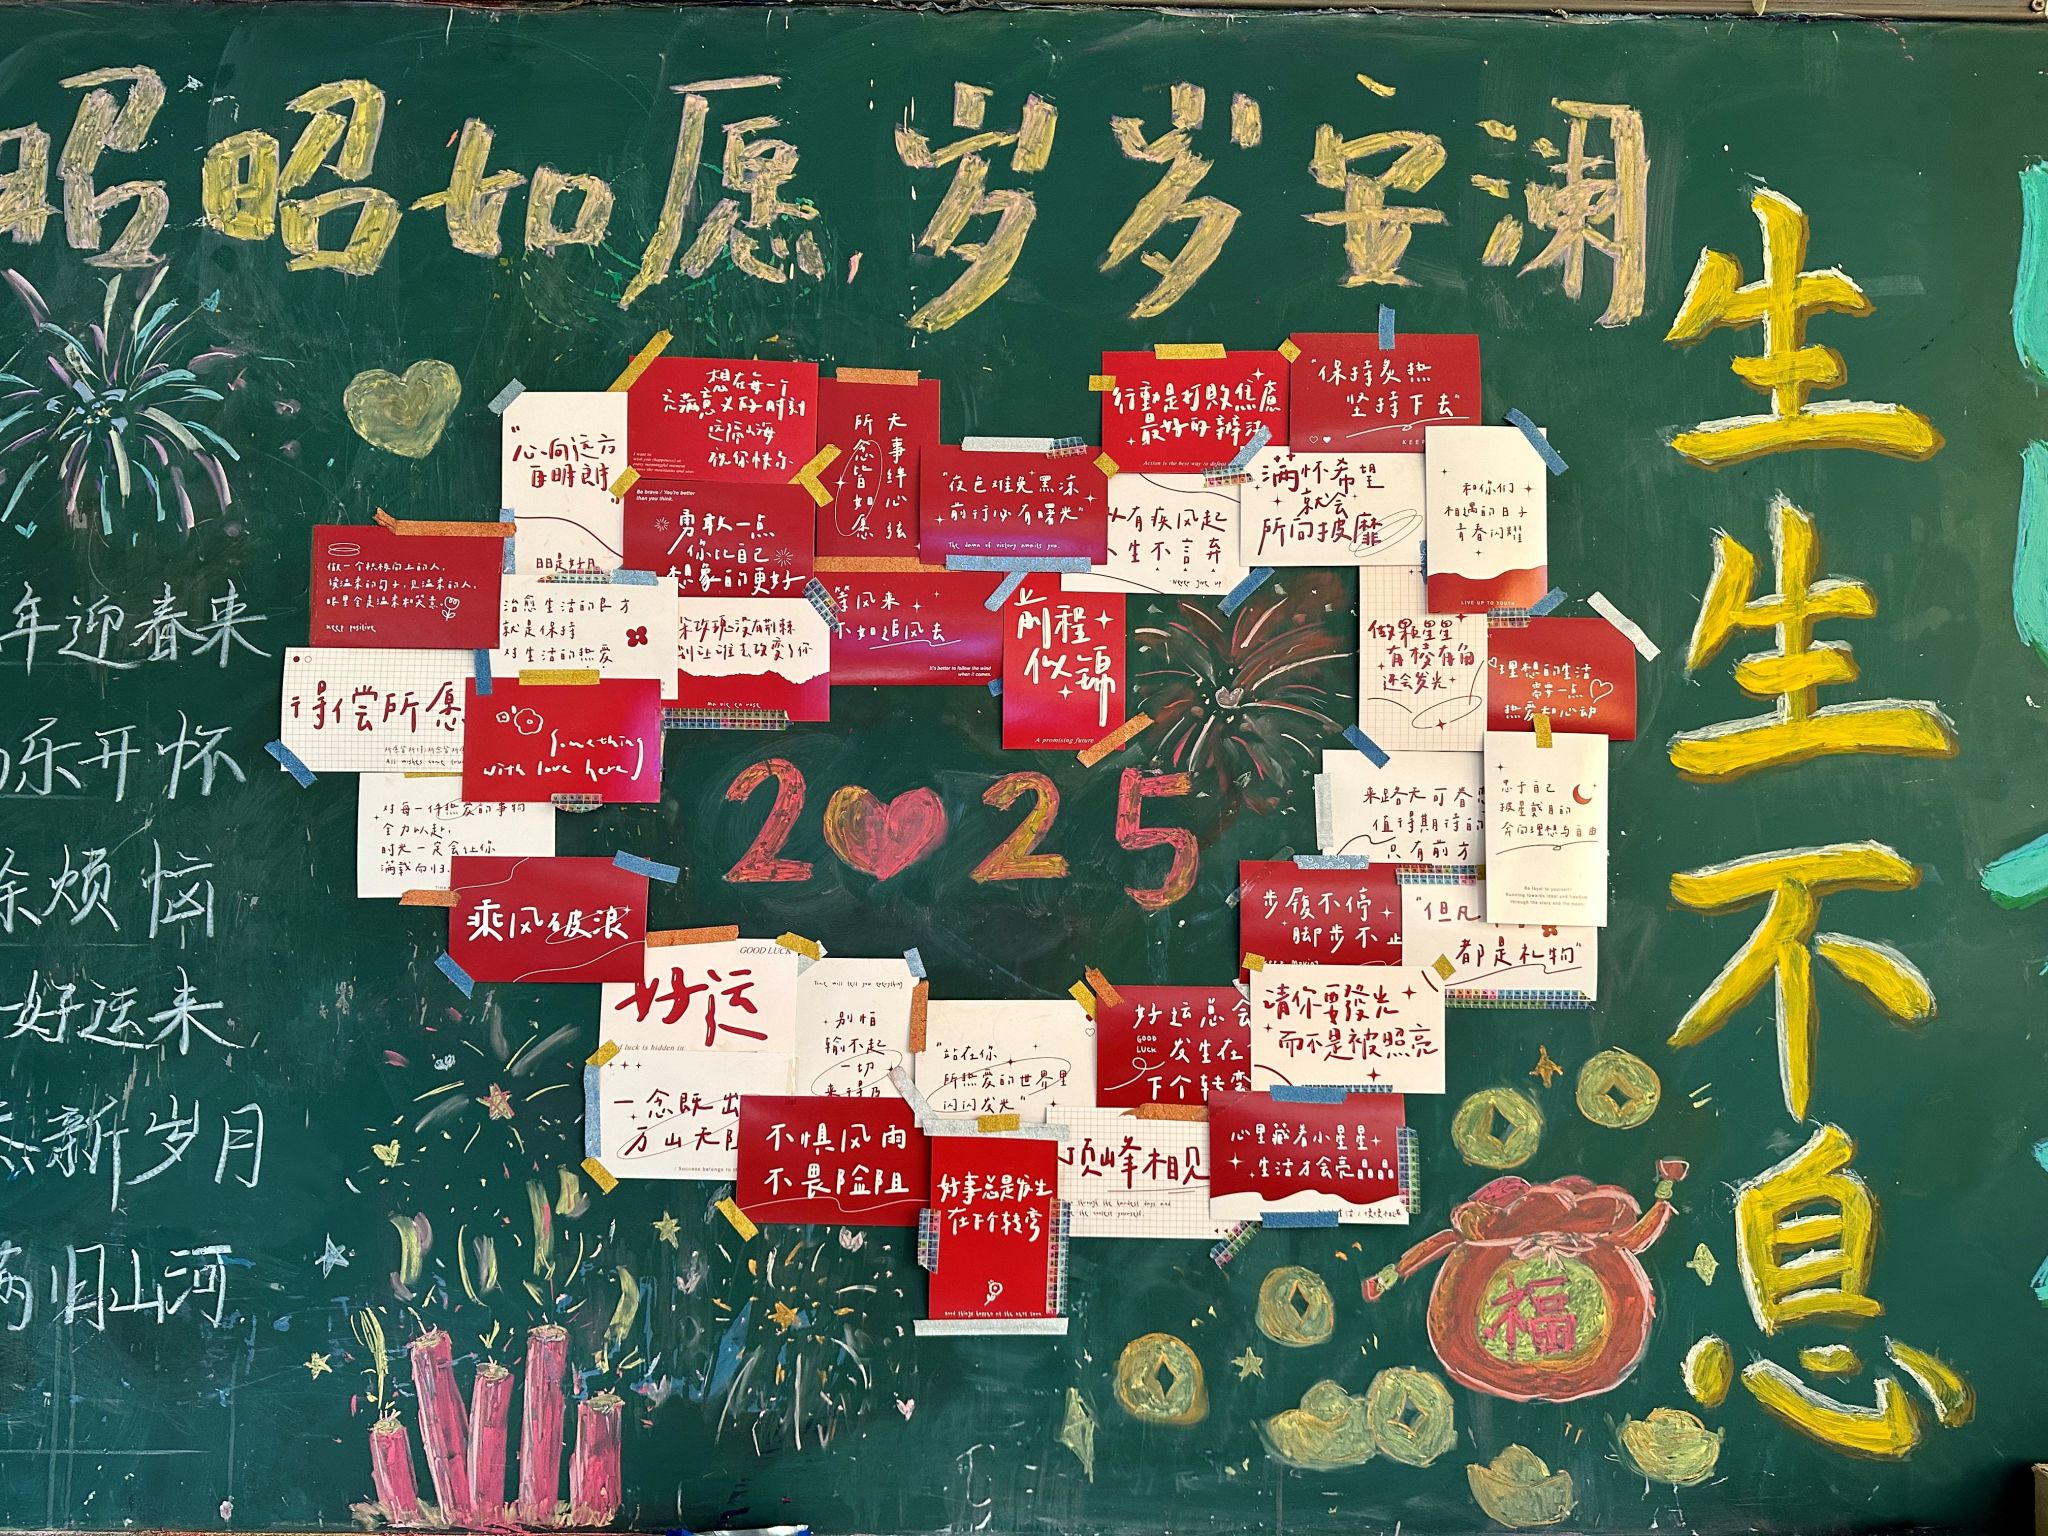 昭昭如愿 岁岁安澜
生生不息
年迎春来
乐开怀
除烦恼
好运来
新岁月
旧山河
2025
福
"心向远方
自明朗"
想在每一个
充满意义的时刻
远隔山海
祝你快乐
I want to
wish you (happiness) at
every meaningful moment
across the mountains and seas
无事绊心弦
所念皆如愿
Be brave / You're better
than you think.
勇敢一点
你比自己
想象的更好
"夜色难免黑凉
前行必有曙光"
The dawn of victory awaits you.
行動是打敗焦慮
最好的辦法
Action is the best way to defeat
"保持炙热
坚持下去"
KEEP
有疾风起
生不言弃
Never give up
满怀希望
就会
所向披靡
和你们
相遇的日子
青春闪耀
LIVE UP TO YOUTH
做一个积极向上的人,
读温柔的句子,见温柔的人,
眼里全是温柔和笑意.
keep positive
治愈生活的良方
就是保持
对生活的热爱
玫瑰没有荆棘
别让谁去改变了你
ma vie en rose
风来
不如追风去
It's better to follow the wind
when it comes.
前程
似锦
A promising future
做颗星星
有棱有角
还会发光
理想的生活
需要一点
热爱和心动
得偿所愿
All wishes come
Something
with love here
对每一件热爱的事物
全力以赴,
时光一定会让你
满载而归.
来路无可眷
值得期待的
只有前方
忠于自己
披星戴月的
奔向理想与自由
Be loyal to yourself
Running towards ideal and freedom
through the stars and the moon.
乘风破浪
步履不停
脚步不止
"但凡
都是礼物"
GOOD LUCK
好运
luck is hidden in
Time will tell you everything
别怕
输不起
一切
来得及
"站在你
所热爱的世界里
闪闪发光"
好运总会
GOOD
LUCK
发生在
下个转弯
请你要發光
而不是被照亮
一念既出
万山无阻
Success belongs to
不惧风雨
不畏险阻
好事总是发生
在下个转弯
Good things happen at the next turn
顶峰相见
心里藏着小星星
生活才会亮晶晶